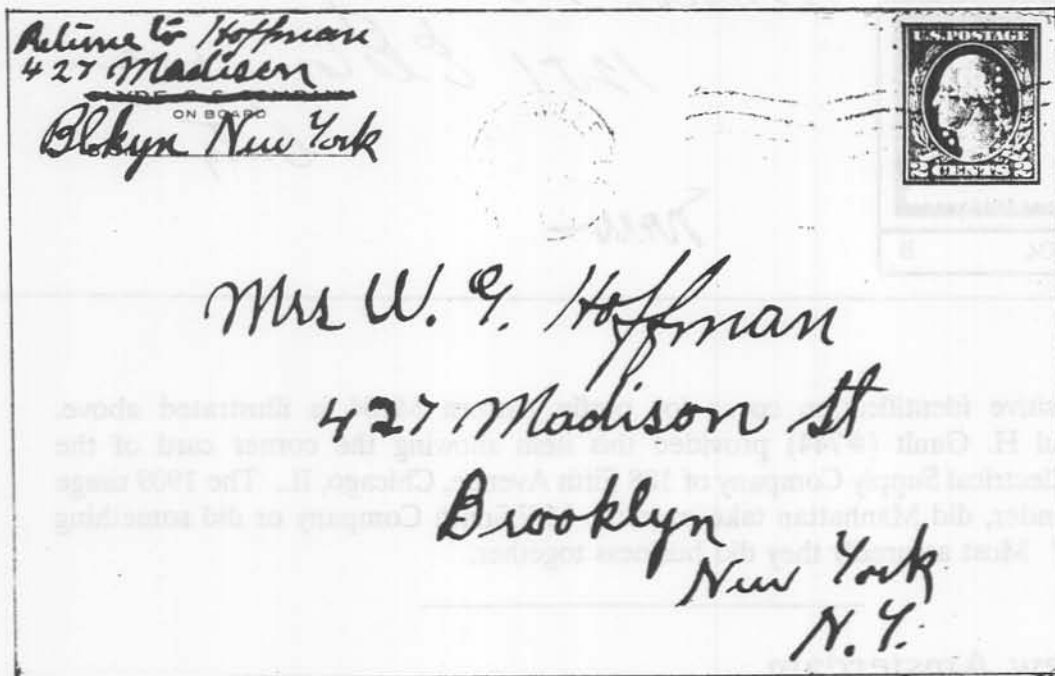 Return to Hoffman
427 Madison
ON BOARD
Blokyn New York
U.S. POSTAGE
2 CENTS 2
Mrs W. G. Hoffman
427 Madison St
Brooklyn
New York
N.Y.